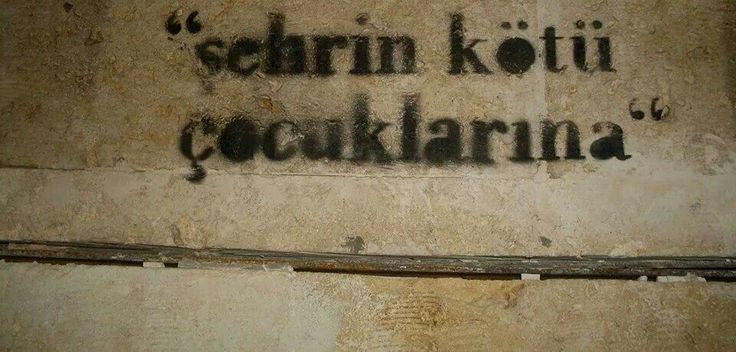 “şehrin kötü
çocuklarına“